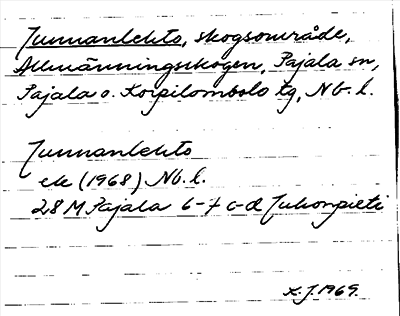 Junnanlehto, skogsområde,
Allmänningsskogen, Pajala sn,
Pajala o. Korpilombolo tg, Nb. l.
Junnanlehto
ek (1968) Nb. l.
28 M Pajala 6-7 c-d Juhonpieti
L. J. 1969.